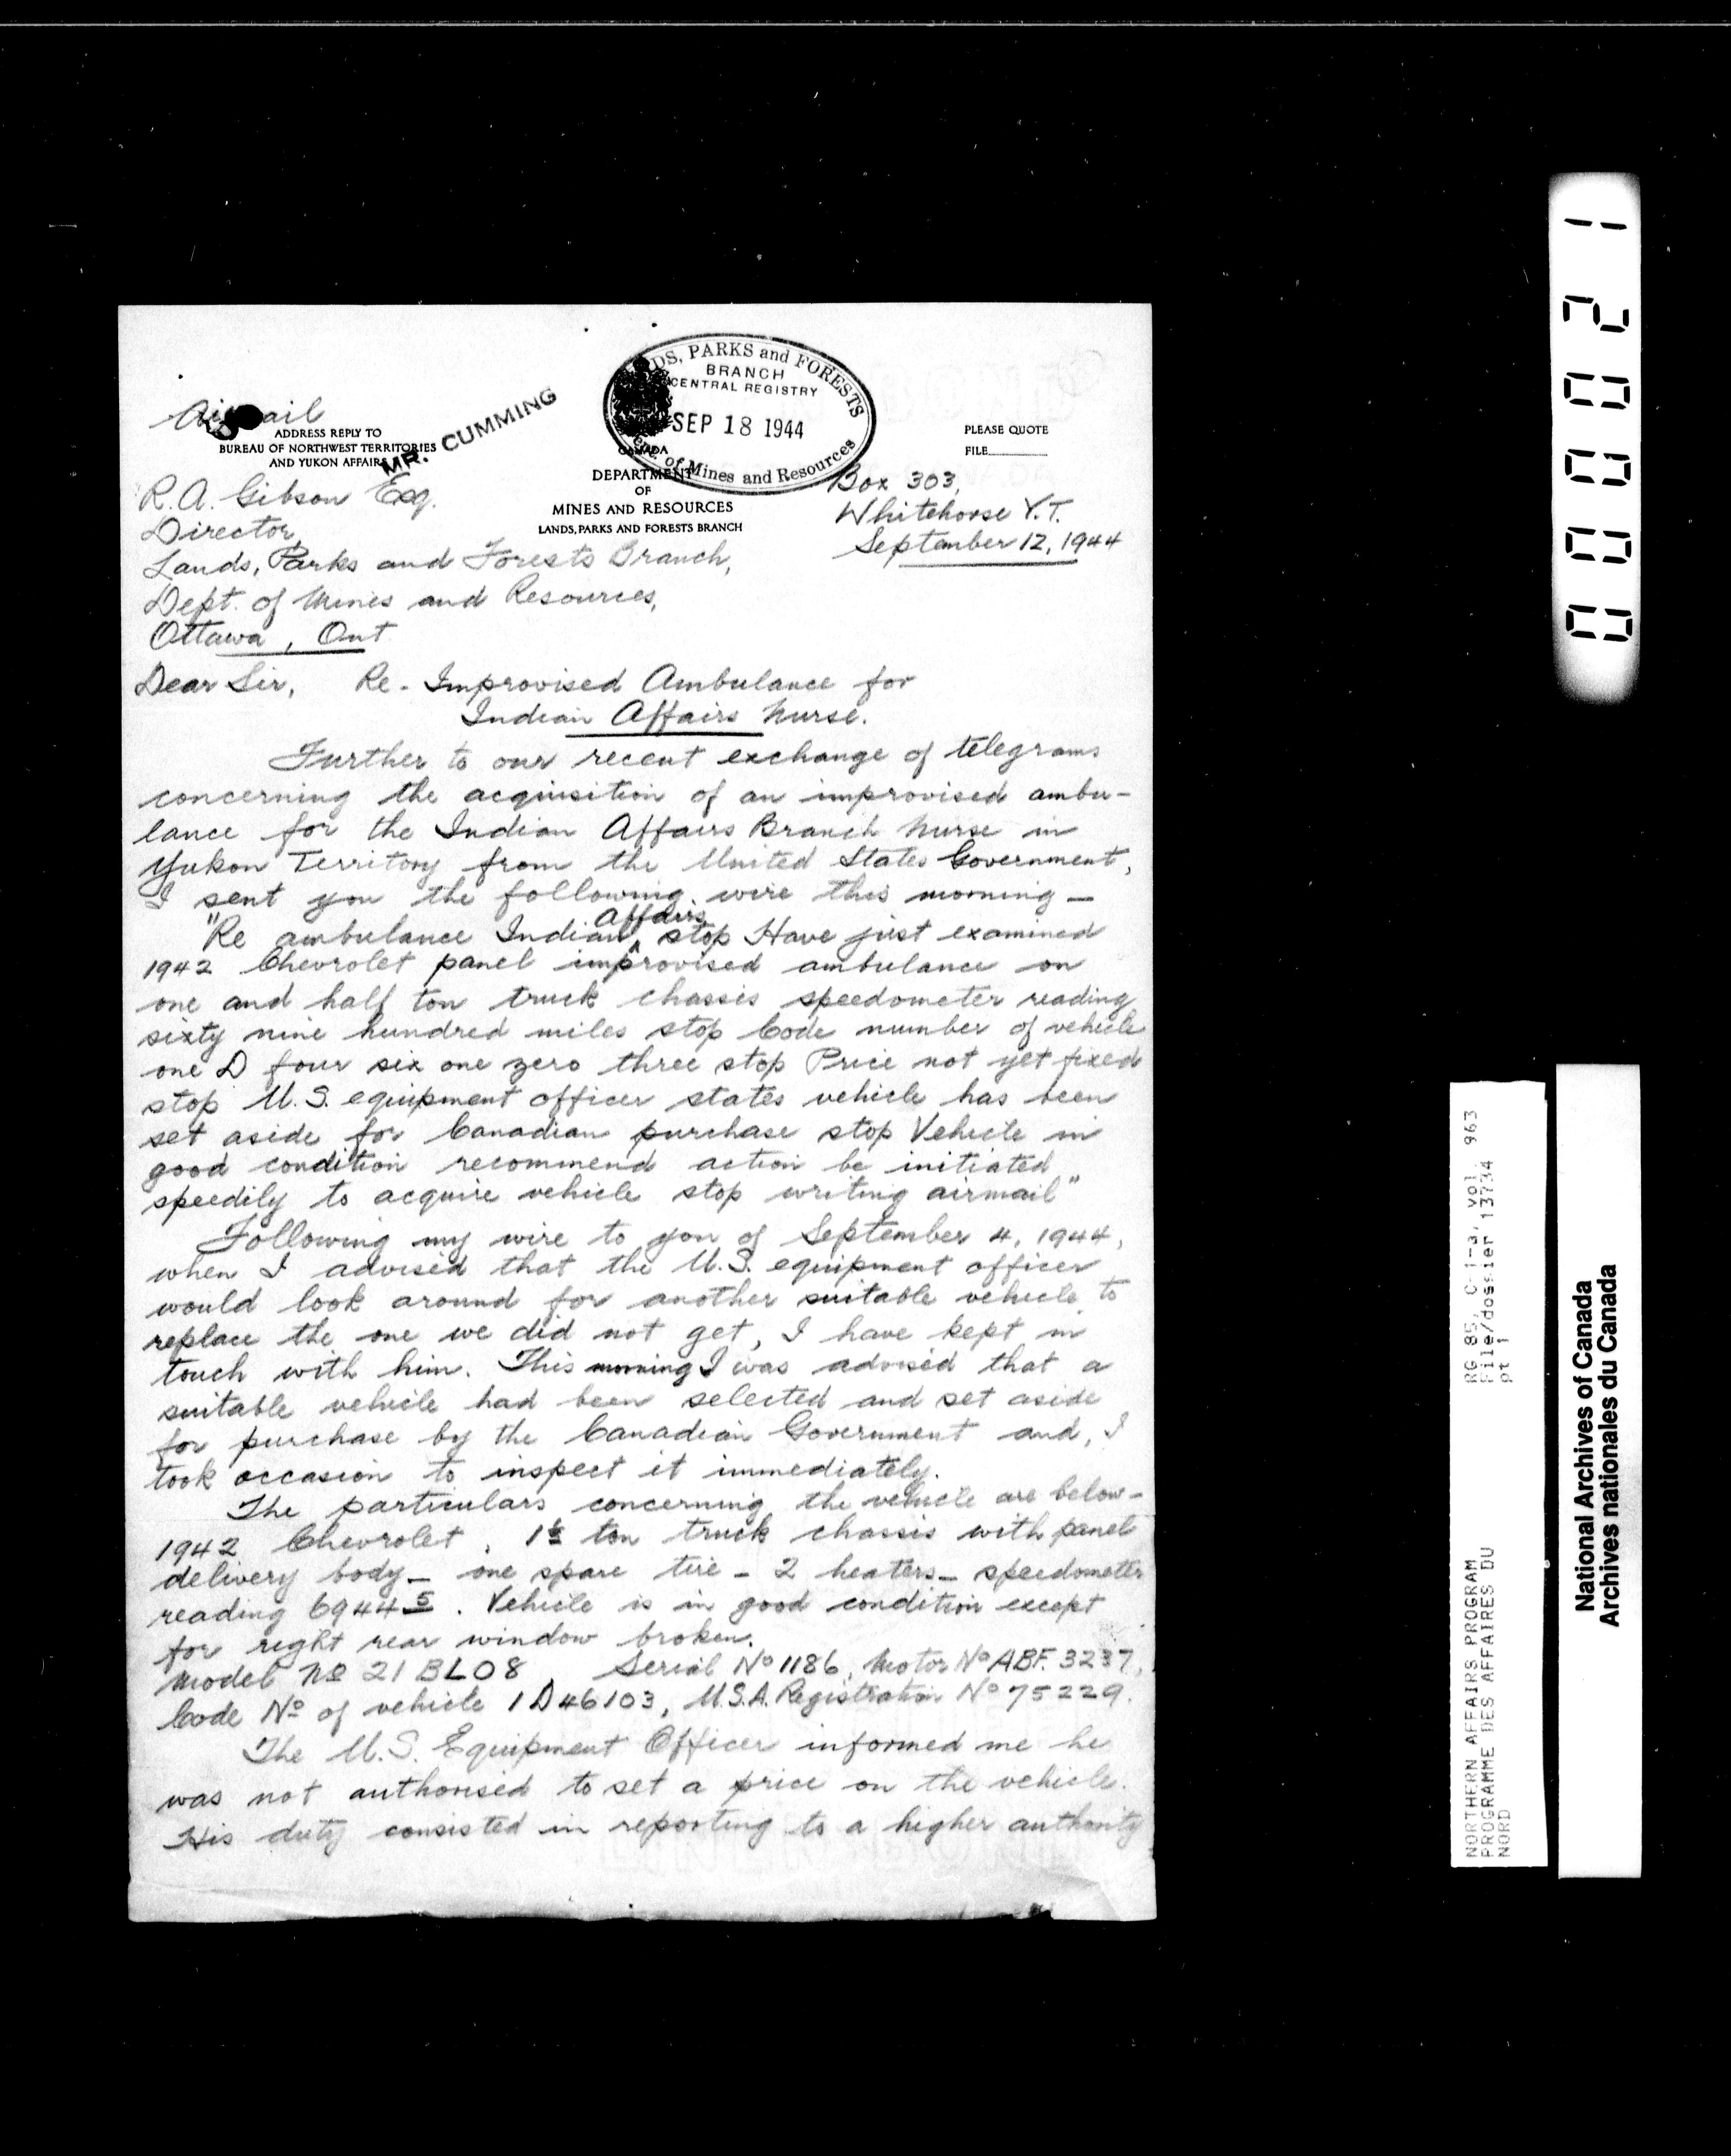 Airmail
ADDRESS REPLY TO
BUREAU OF NORTHWEST TERRITORIES
AND YUKON AFFAIRS
MR. CUMMING
DS, PARKS and FORESTS
BRANCH
CENTRAL REGISTRY
SEP 18 1944
of Mines and Resources
CANADA
DEPARTMENT
OF
MINES AND RESOURCES
LANDS, PARKS AND FORESTS BRANCH
PLEASE QUOTE
FILE
Box 303,
Whitehorse Y.T.
September 12, 1944
R.A. Gibson Esq.
Director,
Lands, Parks and Forests Branch,
Dept. of Mines and Resources,
Ottawa, Ont.
Dear Sir, Re - Improvised Ambulance for
Indian Affairs Nurse.
Further to our recent exchange of telegrams
concerning the acquisition of an improvised ambu-
lance for the Indian Affairs Branch nurse in
Yukon Territory from the United States Government,
I sent you the following wire this morning —
"Re ambulance Indian Affairs stop Have just examined
1942 Chevrolet panel improvised ambulance on
one and half ton truck chassis speedometer reading
sixty nine hundred miles stop Code number of vehicle
one D four six one zero three stop Price not yet fixed
stop U.S. equipment officer states vehicle has been
set aside for Canadian purchase stop Vehicle in
good condition recommend action be initiated
speedily to acquire vehicle stop writing airmail"
Following my wire to you of September 4, 1944,
when I advised that the U.S. equipment officer
would look around for another suitable vehicle to
replace the one we did not get, I have kept in
touch with him. This morning I was advised that a
suitable vehicle had been selected and set aside
for purchase by the Canadian Government and, I
took occasion to inspect it immediately.
The particulars concerning the vehicle are below -
1942 Chevrolet, 1½ ton truck chassis with panel
delivery body — one spare tire — 2 heaters — speedometer
reading 6944 5. Vehicle is in good condition except
for right rear window broken.
Model No 21 BL08, Serial No 1186, Motor No ABF. 3237,
Code No of vehicle 1D46103, U.S.A. Registration No 75229.
The U.S. Equipment Officer informed me he
was not authorised to set a price on the vehicle.
His duty consisted in reporting to a higher authority
00021
RG 85, C-1-a, vol. 963
File/dossier 13734
pt 1
NORTHERN AFFAIRS PROGRAM
PROGRAMME DES AFFAIRES DU
NORD
National Archives of Canada
Archives nationales du Canada